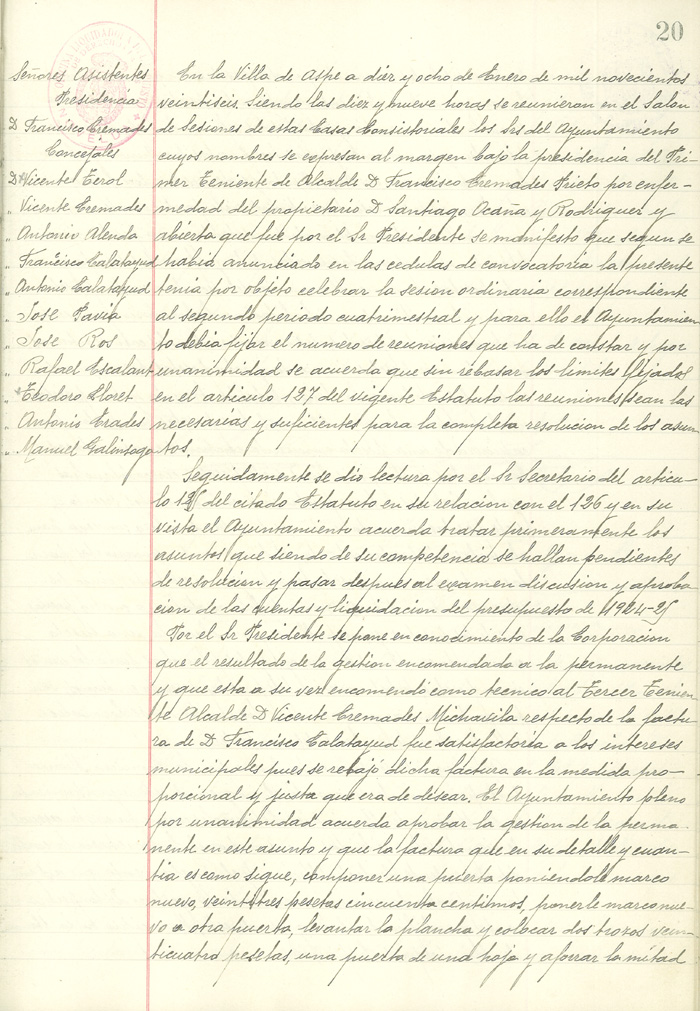 20
Señores Asistentes
Presidencia
D Francisco Cremades
Concejales
D Vicente Terol
" Vicente Cremades
" Antonio Alenda
" Francisco Calatayud
" Antonio Calatayud
" Jose Pavia
" Jose Ros
" Rafael Escalant
" Teodoro Lloret
" Antonio Prades
" Manuel Galinsoga
En la Villa de Aspe a diez y ocho de Enero de mil novecientos
veintiseis. Siendo las diez y nueve horas se reunieron en el Salon
de Sesiones de estas Casas Consistoriales los Srs del Ayuntamiento
cuyos nombres se expresan al margen bajo la presidencia del Pri-
mer Teniente de Alcalde D Francisco Cremades Prieto por enfer-
medad del propietario D Santiago Ocaña y Rodriguez y
abierta que fue por el Sr Presidente se manifesto que segun se
habia anunciado en las cedulas de convocatoria la presente
tenia por objeto celebrar la sesion ordinaria correspondiente
al segundo periodo cuatrimestral y para ello el Ayuntamien
to debia fijar el numero de reuniones que ha de constar y por
unanimidad se acuerda que sin rebasar los limites fijados
en el articulo 127 del vigente Estatuto las reuniones sean las
necesarias y suficientes para la completa resolucion de los asun
tos.
Seguidamente se dio lectura por el Sr Secretario del articu-
lo 125 del citado Estatuto en su relacion con el 126 y en su
vista el Ayuntamiento acuerda tratar primeramente los
asuntos que siendo de su competencia se hallan pendientes
de resolucion y pasar despues al examen discusion y aproba
cion de las cuentas y liquidacion del presupuesto de 1924-25
Por el Sr Presidente se pone en conocimiento de la Corporacion
que el resultado de la gestion encomendado a la permanente
y que esta a su vez encomendó como tecnico al Tercer Tenien
te Alcalde D Vicente Cremades Michavila respecto de la factu-
ra de D Francisco Calatayud fue satisfactoria a los intereses
municipales pues se rebajó dicha factura en la medida pro-
porcional y justa que era de desear. El Ayuntamiento pleno
por unanimidad acuerda aprobar la gestion de la perma-
nente en este asunto y que la factura que en su detalle y cuan-
tia es como sigue, componer una puerta poniendole marco
nuevo, veintitres pesetas cincuenta centimos, ponerle marco nue-
vo a otra puerta, levantar la plancha y colocar dos trozos vein-
ticuatro pesetas, una puerta de una hoja y aforrar la mitad